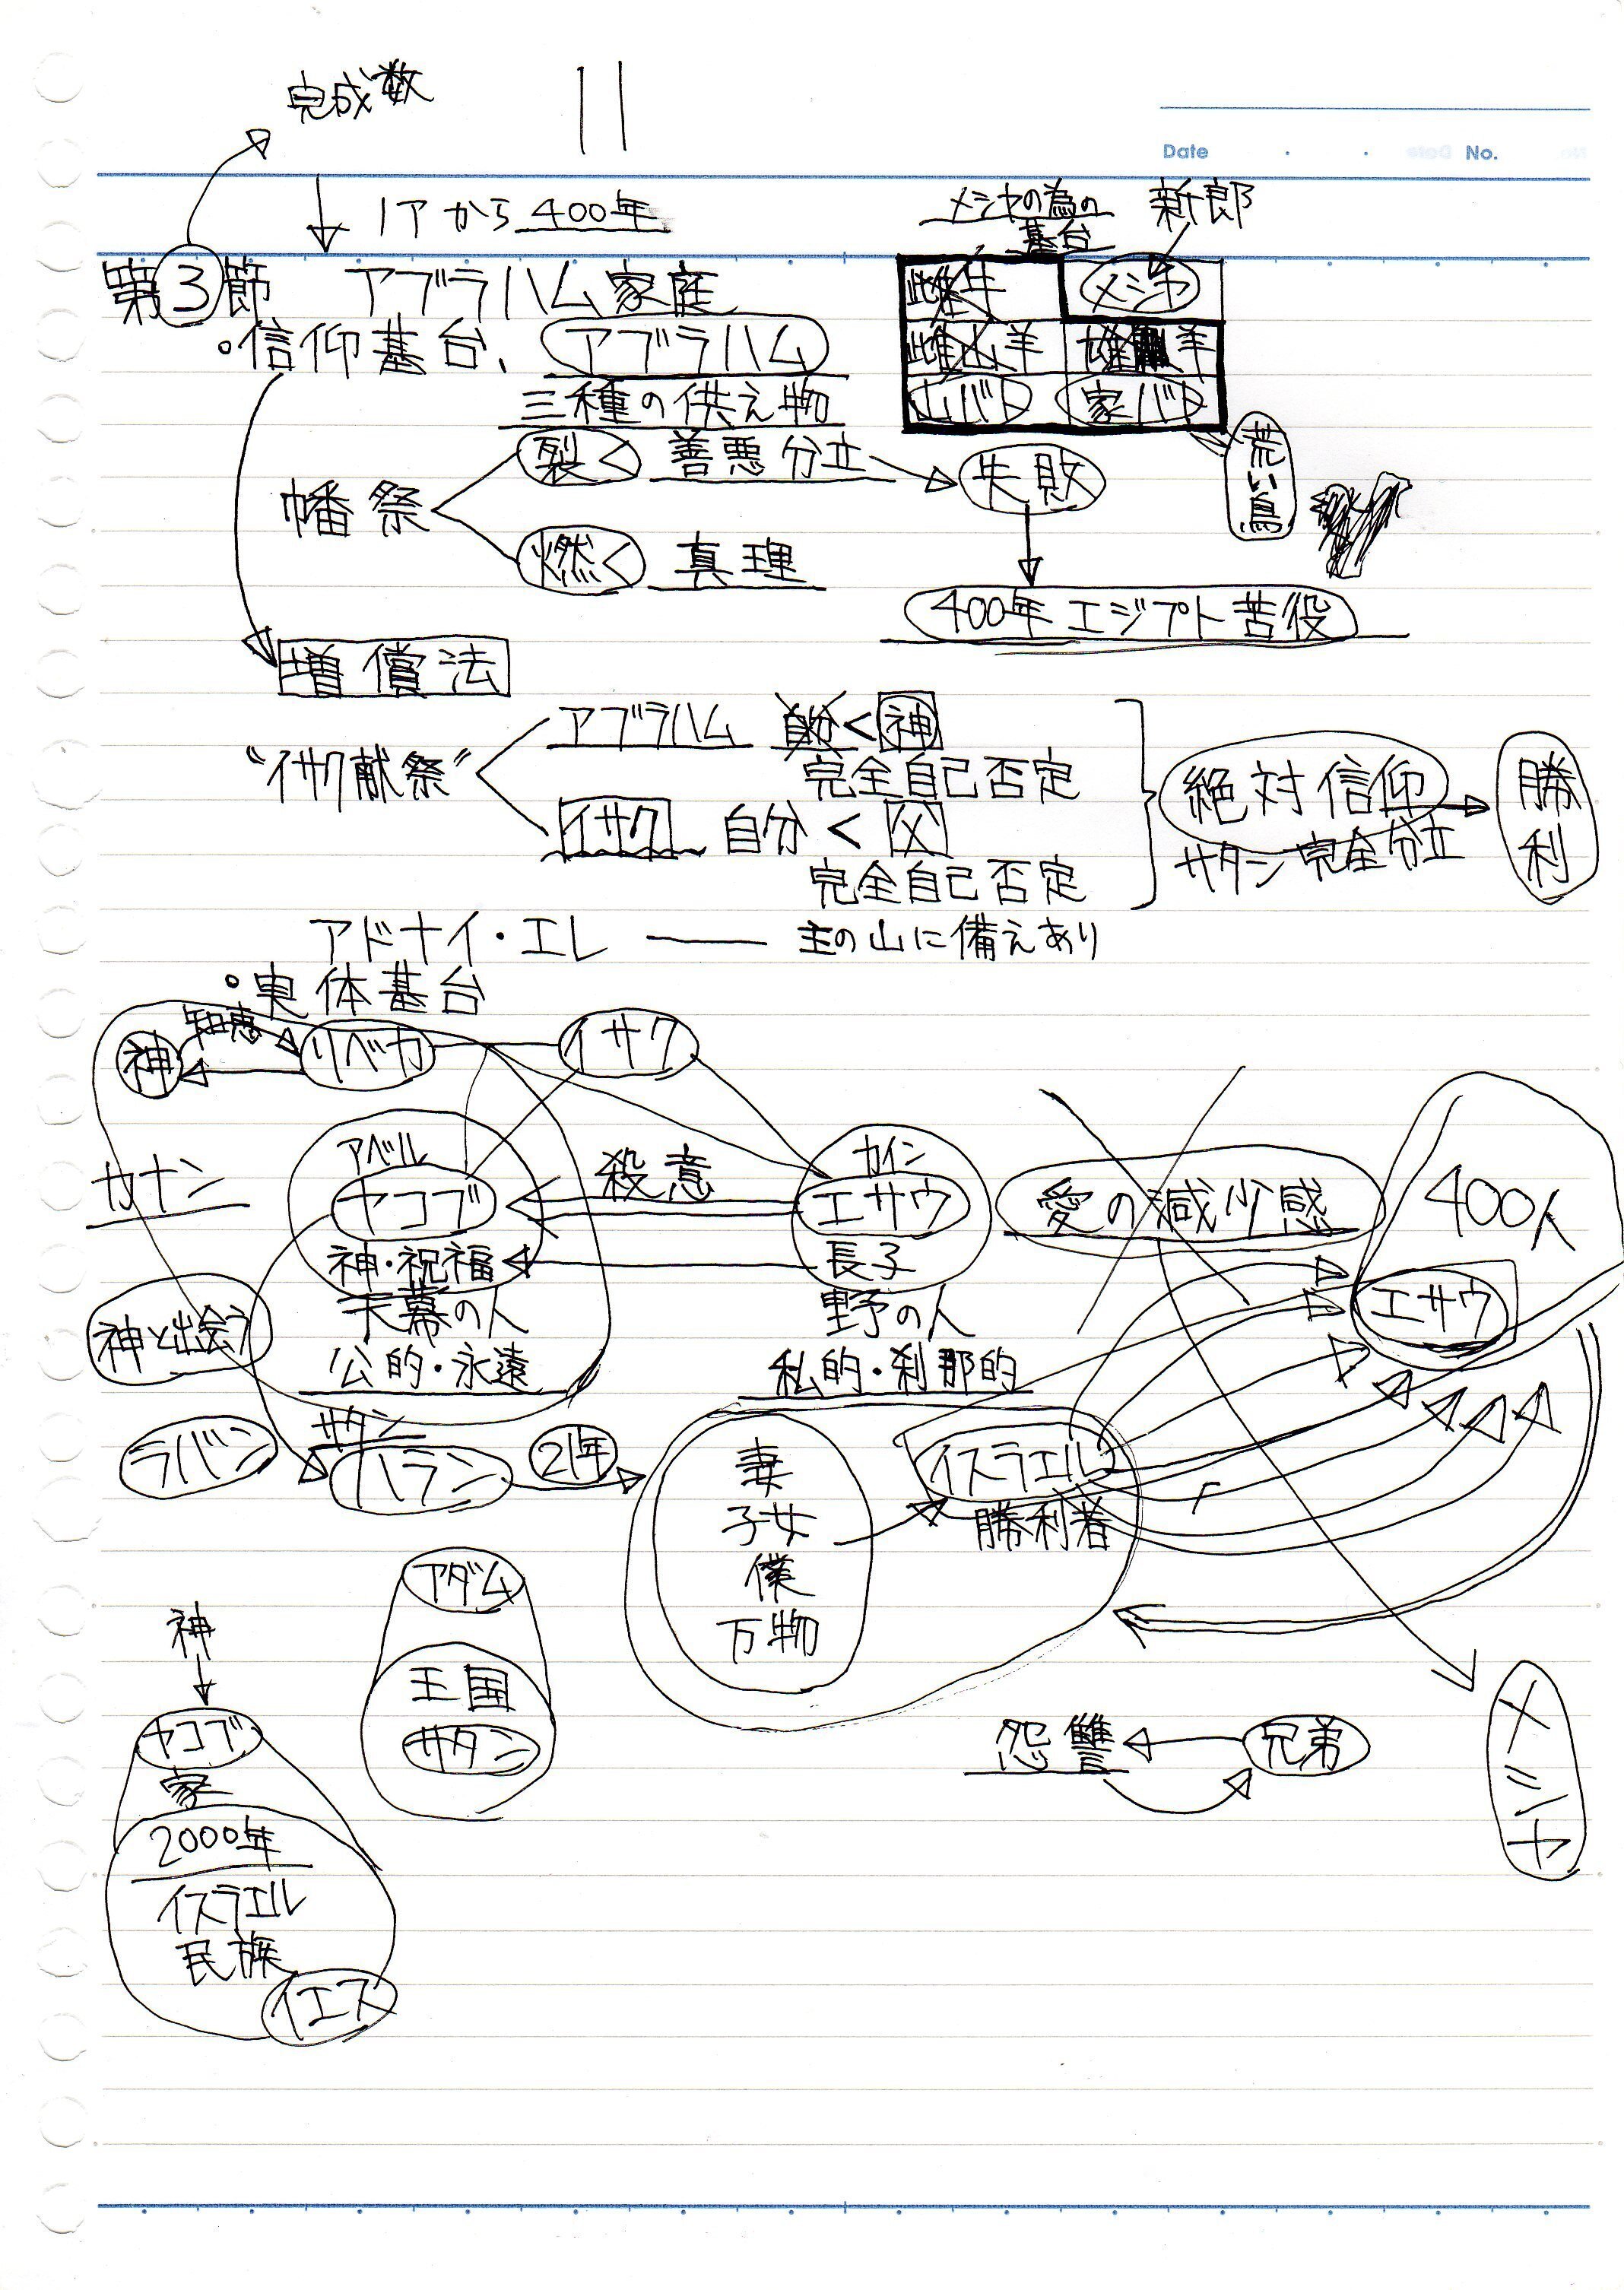 完成数
11
Date ・ ・ No.
ノアから400年
メシヤの為の
基台
新郎
第3節 アブラハム家庭
雌牛 メシヤ
・信仰基台、アブラハム
雌山羊 雄羊
三種の供え物
山バト 家バト
裂く 善悪分立
失敗
荒い鳥
幡祭
燃く 真理
400年エジプト苦役
増償法
アブラハム 自分<神
完全自己否定
"イサク献祭"
絶対信仰
勝利
イサク 自分<父
サタン完全分立
完全自己否定
アドナイ・エレ ― 主の山に備えあり
・実体基台
神 知恵 リベカ イサク
アベル
カイン
カナン
ヤコブ 殺意 エサウ
愛の減少感
400人
神・祝福
長子
神と出会う
天幕の人
野の人
エサウ
公的・永遠
私的・刹那的
サタン
ラバン
ハラン
21年
妻
イスラエル
子女
勝利者
僕
万物
アダム
神
王国
サタン
ヤコブ
家
怨讐 兄弟
メシヤ
2000年
イスラエル
民族
イエス